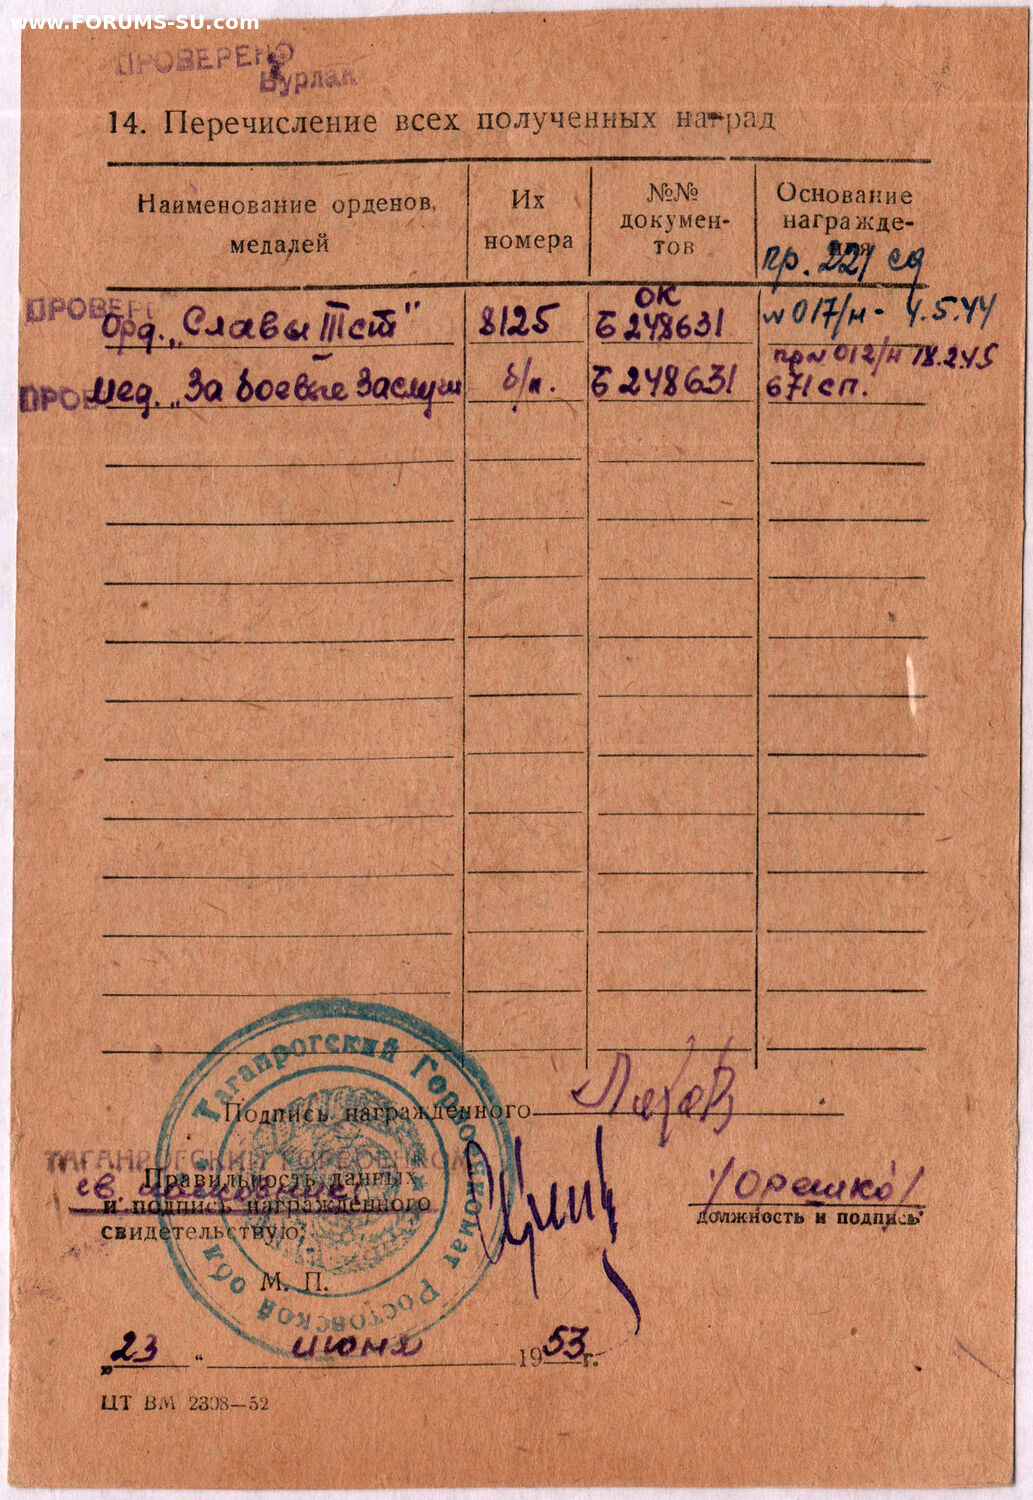 www.FORUMS-SU.com
ПРОВЕРЕНО
Бурлак
14. Перечисление всех полученных наград
Наименование орденов, медалей
Их номера
№№ докумен-тов
Основание награжде-ния
пр. 221 сд
ПРОВЕРЕ
Орд. „Славы III ст"
8125
ОК
Б 248631
№ 017/н - 4.5.44
ПРОВ
Мед. „За боевые заслуги
б/н.
Б 248631
пр № 012/н 18.2.45
671 сп.
Подпись награжденного
Таганрогский Горвоенкомат Ростовской обл
ТАГАНРОГСКИЙ ГОРВОЕНКОМ
Правильность данных
и подпись награжденного
свидетельствую:
/Орешко/
должность и подпись
М. П.
„23 " июня 1953 г.
ЦТ ВМ 2308—52